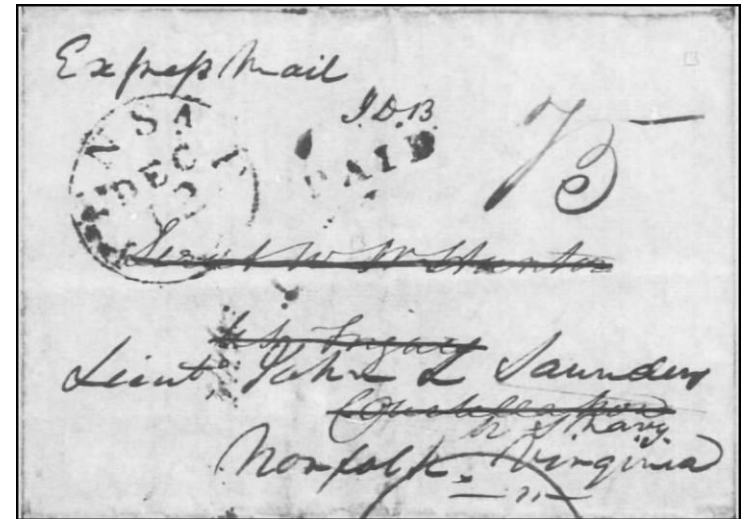 Express Mail
J.D.B.
PAID
75
DEC
12
Lieut W W Hunter
U.S. Navy
Lieut John L Saunders
U S Navy
Norfolk Virginia